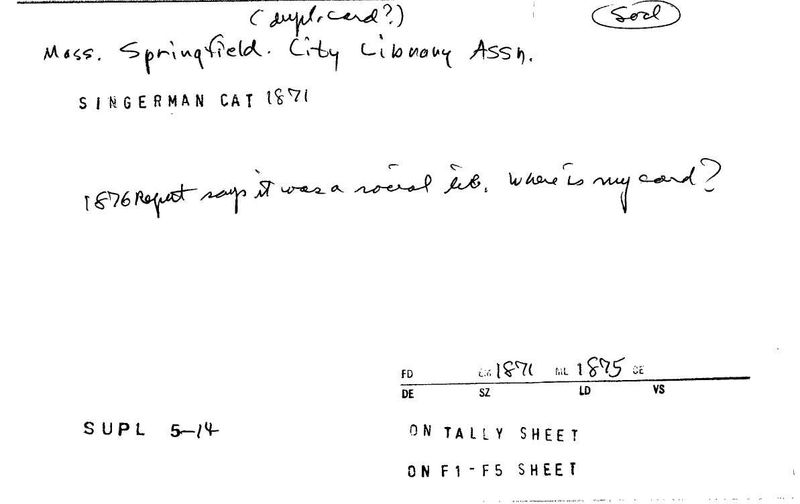 (dupl. card?) Socl
Mass. Springfield. City Library Assn.
SINGERMAN CAT 1871
1876 Report says it was a social lib. Where is my card?
FD CA 1871 ML 1875 SE
DE SZ LD VS
SUPL 5-14 ON TALLY SHEET
ON F1-F5 SHEET